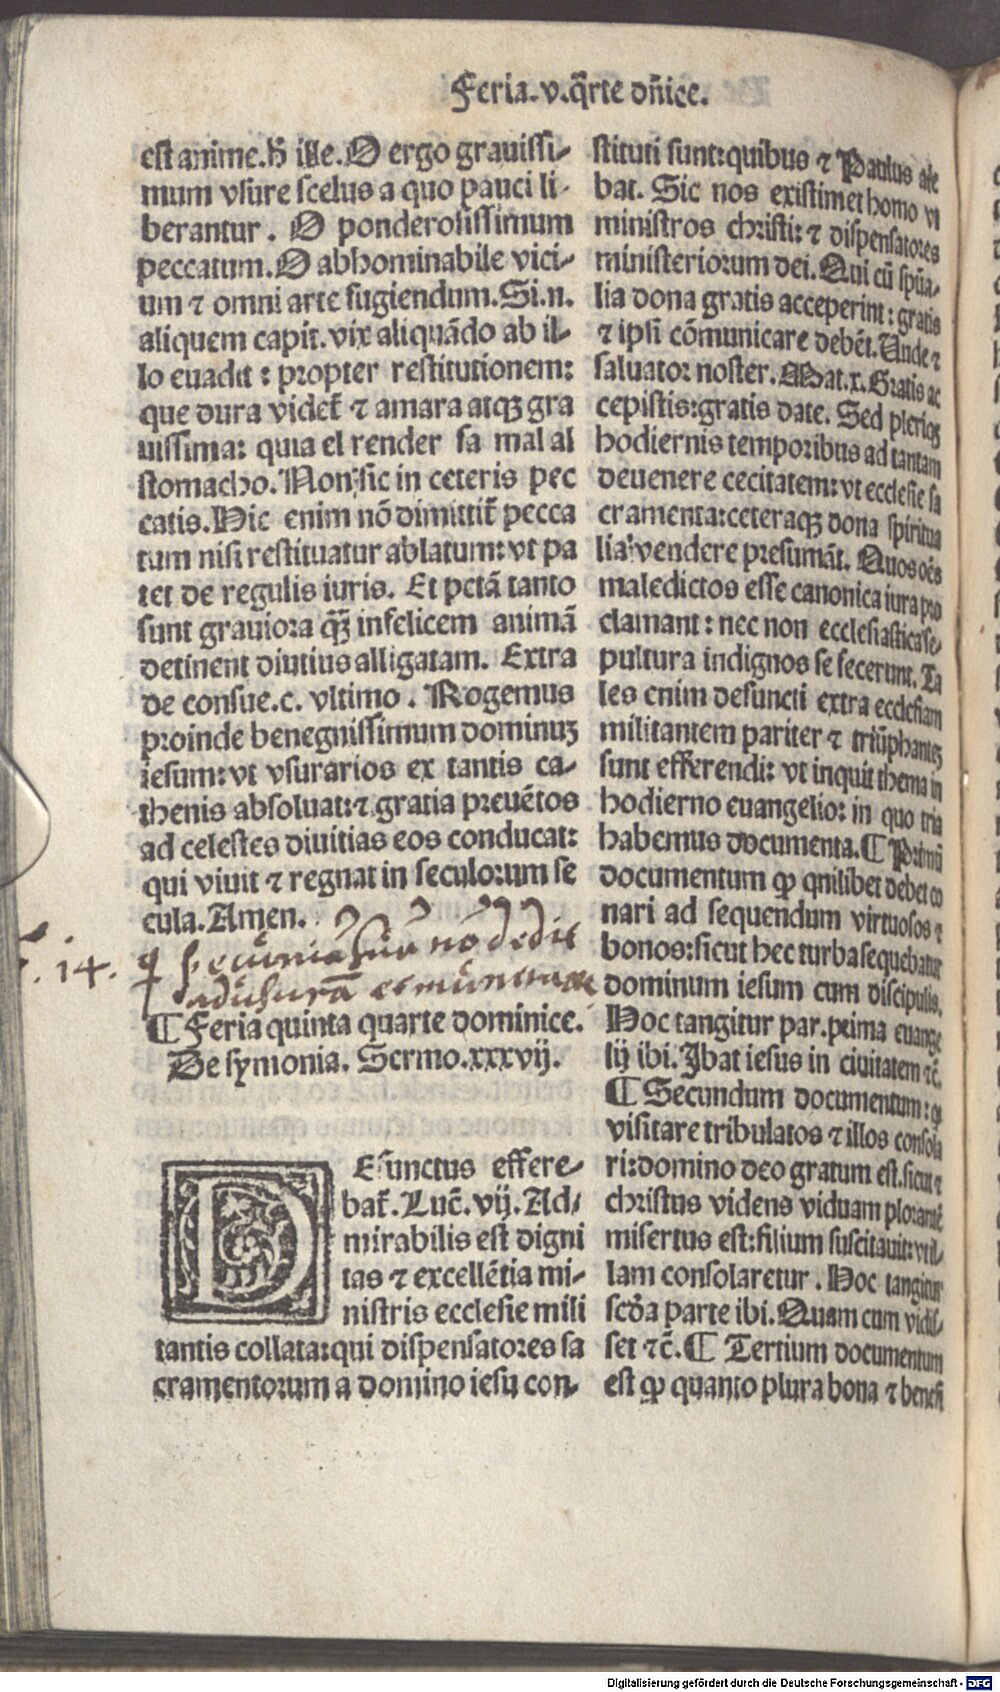 Feria.v.q̃rte dñice.
est anime.h̃ ille.O ergo grauissi-
mum vsure scelus a quo pauci li-
berantur. O ponderosissimum
peccatum.O abhominabile vici-
um ⁊ omni arte fugiendum.Si.n.
aliquem capit.vix aliquãdo ab il-
lo euadit: propter restitutionem:
que dura videt̃ ⁊ amara atqꝫ gra
uissima: quia el render fa mal al
stomacho.Non sic in ceteris pec
catis.Hic enim nõ dimittit̃ pecca
tum nisi restituatur ablatum:vt pa
tet de regulis iuris. Et pctã tanto
sunt grauiora q̃ꝫ infelicem animã
detinent diutius alligatam. Extra
de consue.c. vltimo. Rogemus
proinde benegnissimum dominuꝫ
iesum:vt vsurarios ex tantis ca-
thenis absoluat:⁊ gratia preuẽtos
ad celestes diuitias eos conducat:
qui viuit ⁊ regnat in seculorum se
cula.Amen.
.14. pecuniã suã nõ dedit
ad usurã et munera
¶ Feria quinta quarte dominice.
De symonia. Sermo.xxxvij.
DEfunctus effere-
bat̃.Luc̃.vij.Ad-
mirabilis est digni
tas ⁊ excellẽtia mi-
nistris ecclesie mili
tantis collata:qui dispensatores sa
cramentorum a domino iesu con-
stituti sunt:quibus ⁊ Paulus aie
bat. Sic nos existimet homo vt
ministros christi: ⁊ dispensatores
ministeriorum dei.Qui cũ spũa-
lia dona gratis acceperint: gratis
⁊ ipsi cõmunicare debẽt.Unde ⁊
saluator noster.Mat.x.Gratis ac
cepistis:gratis date. Sed pleriqꝫ
hodiernis temporibus ad tantam
deuenere cecitatem:vt ecclesie sa
cramenta:ceteraqꝫ dona spiritua
lia vendere presumãt. Quos oẽs
maledictos esse canonica iura pro
clamant: nec non ecclesiastica se-
pultura indignos se fecerunt. Ta
les enim defuncti extra ecclesiam
militantem pariter ⁊ triũphanteꝫ
sunt efferendi: vt inquit thema in
hodierno euangelio: in quo tria
habemus documenta.¶ Primũ
documentum ꝙ qnilibet debet co
nari ad sequendum virtuosos ⁊
bonos:sicut hec turba sequebatur
dominum iesum cum discipulis.
Hoc tangitur par.prima euange
lij ibi. Ibat iesus in ciuitatem ⁊c̃.
¶ Secundum documentum: ꝙ
visitare tribulatos ⁊ illos consola
ri:domino deo gratum est.sicut ⁊
christus videns viduam plorantẽ
misertus est:filium suscitauit:vt il-
lam consolaretur. Hoc tangitur
scd̃a parte ibi.Quam cum vidis-
set ⁊c̃.¶ Tertium documentum
est ꝙ quanto plura bona ⁊ benefi
Digitalisierung gefördert durch die Deutsche Forschungsgemeinschaft - DFG